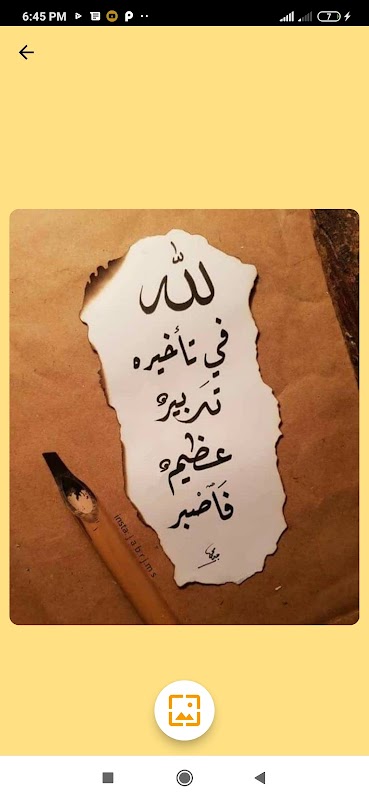 6:45 PM
7
لله
في تأخيره
تدبيرٌ
عظيمٌ
فَاصْبر
insta: j a b r j m s